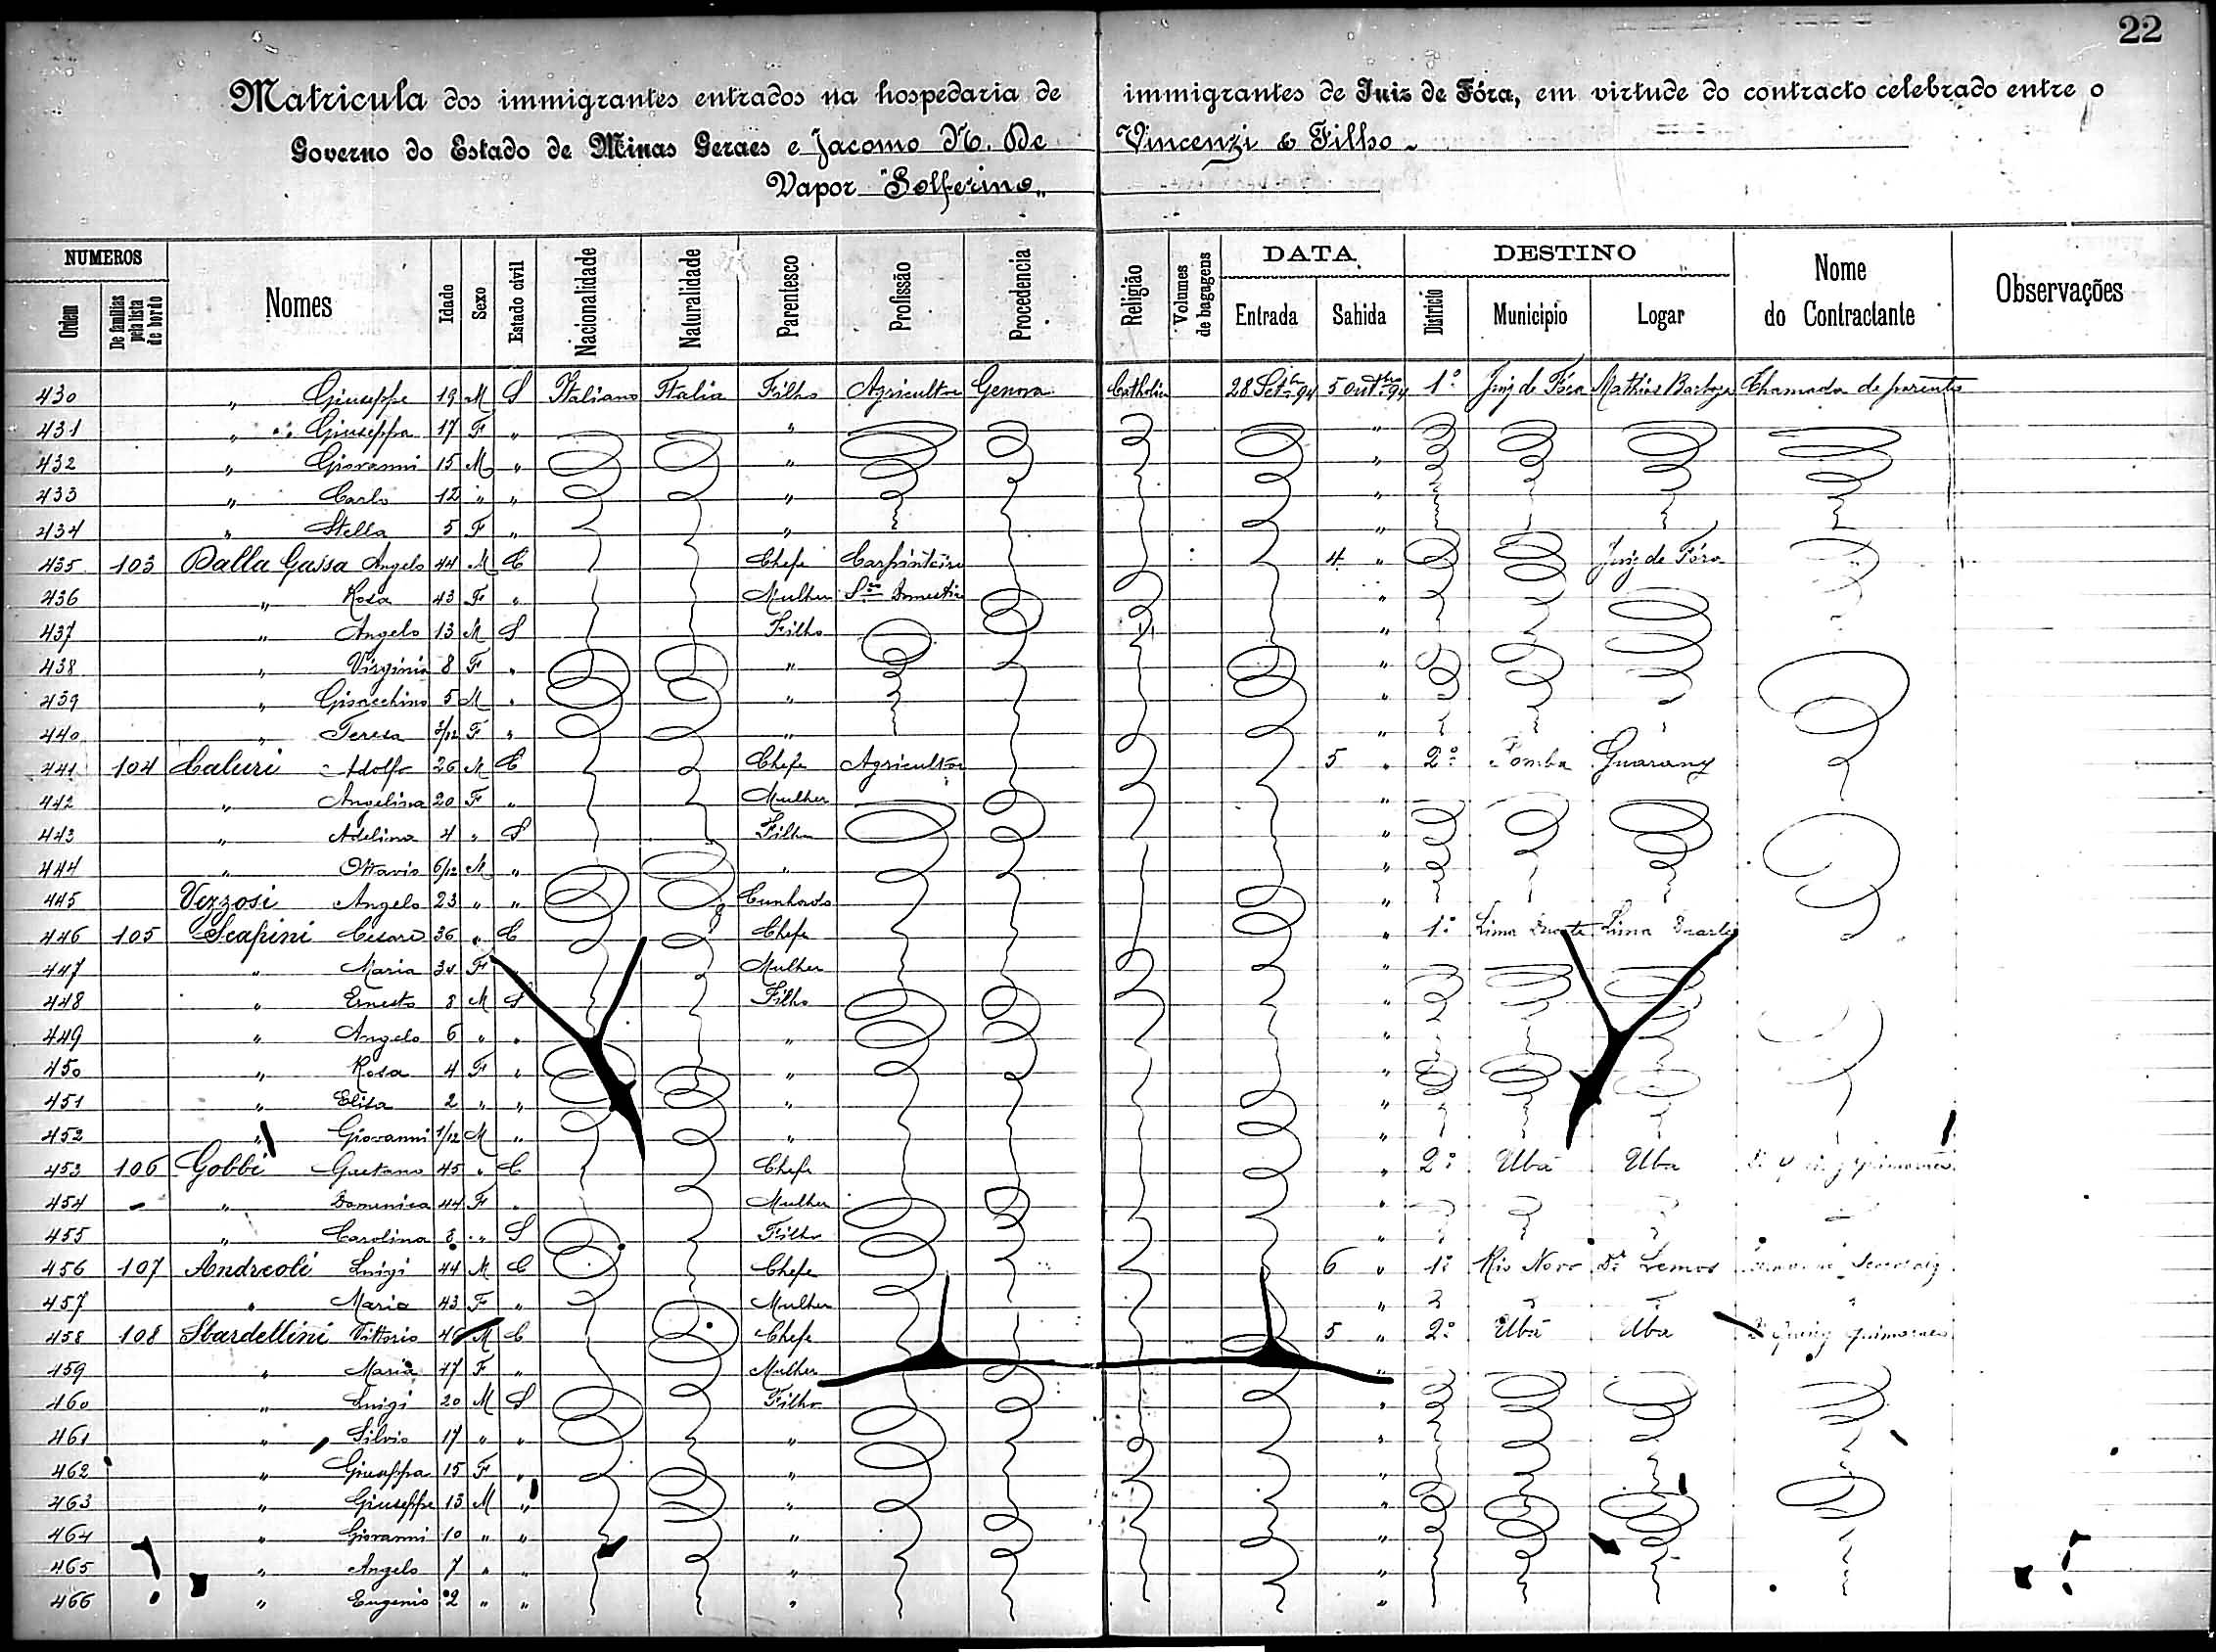 22
Matricula dos immigrantes entrados na hospedaria de immigrantes de Juiz de Fóra, em virtude do contracto celebrado entre o
Governo do Estado de Minas Geraes e Jacomo N. De Vincenzi & Filho
Vapor "Solferino"
NUMEROS Nomes Idade Sexo Estado civil Nacionalidade Naturalidade Parentesco Profissão Procedencia Religião Volumes de bagagens DATA DESTINO Nome do Contractante Observações
Ordem De familias pela lista de bordo Entrada Sahida Districto Municipio Logar
430 " Giuseppe 19 M S Italiano Italia Filho Agricultor Genova Catholica 28 Setbr 94 5 Outbr 94 1º Juiz de Fóra Mathias Barboza Chamada de parentes
431 " Giuseppa 17 F " " "
432 " Giovanni 15 M " " "
433 " Carlo 12 " " " "
434 " Stella 5 F " " "
435 103 Dalla Gassa Angelo 44 M C Chefe Carpinteiro 4 " Juiz de Fóra
436 " Rosa 43 F " Mulher Sço Domestico "
437 " Angelo 13 M S Filho "
438 " Virginia 8 F " " "
439 " Gioacchino 5 M " " "
440 " Teresa /12 F " " "
441 104 Caluri Adolfo 26 M C Chefe Agricultor 5 " 2º Pomba Guarany
442 " Angelina 20 F " Mulher "
443 " Adelina 4 " S Filha "
444 " Ottavio 6/12 M " " "
445 Vezzosi Angelo 23 " " Cunhado "
446 105 Scapini Cesare 36 " C Chefe " 1º Lima Duarte Lima Duarte
447 " Maria 34 F Mulher "
448 " Ernesto 8 M S Filho "
449 " Angelo 6 " " " "
450 " Rosa 4 F " " "
451 " Elisa 2 " " " "
452 " Giovanni 1/12 M " " "
453 106 Gobbi Gaetano 45 " C Chefe " 2º Ubá Ubá
454 " Domenica 44 F " Mulher "
455 " Carolina 8 " S Filha "
456 107 Andreoli Luigi 44 M C Chefe 6 " 1º Rio Novo Dr Lemos
457 " Maria 43 F " Mulher "
458 108 Sbardellini Vittorio M C Chefe 5 " 2º Ubá Ubá Guimarães
459 " Maria 47 F " Mulher "
460 " Luigi 20 M S Filho "
461 " Silvio 17 " " " "
462 " Giuseppa 15 F " " "
463 " Giuseppe 13 M " " "
464 " Giovanni 10 " " " "
465 " Angelo 7 " " " "
466 " Eugenio 2 " " " "